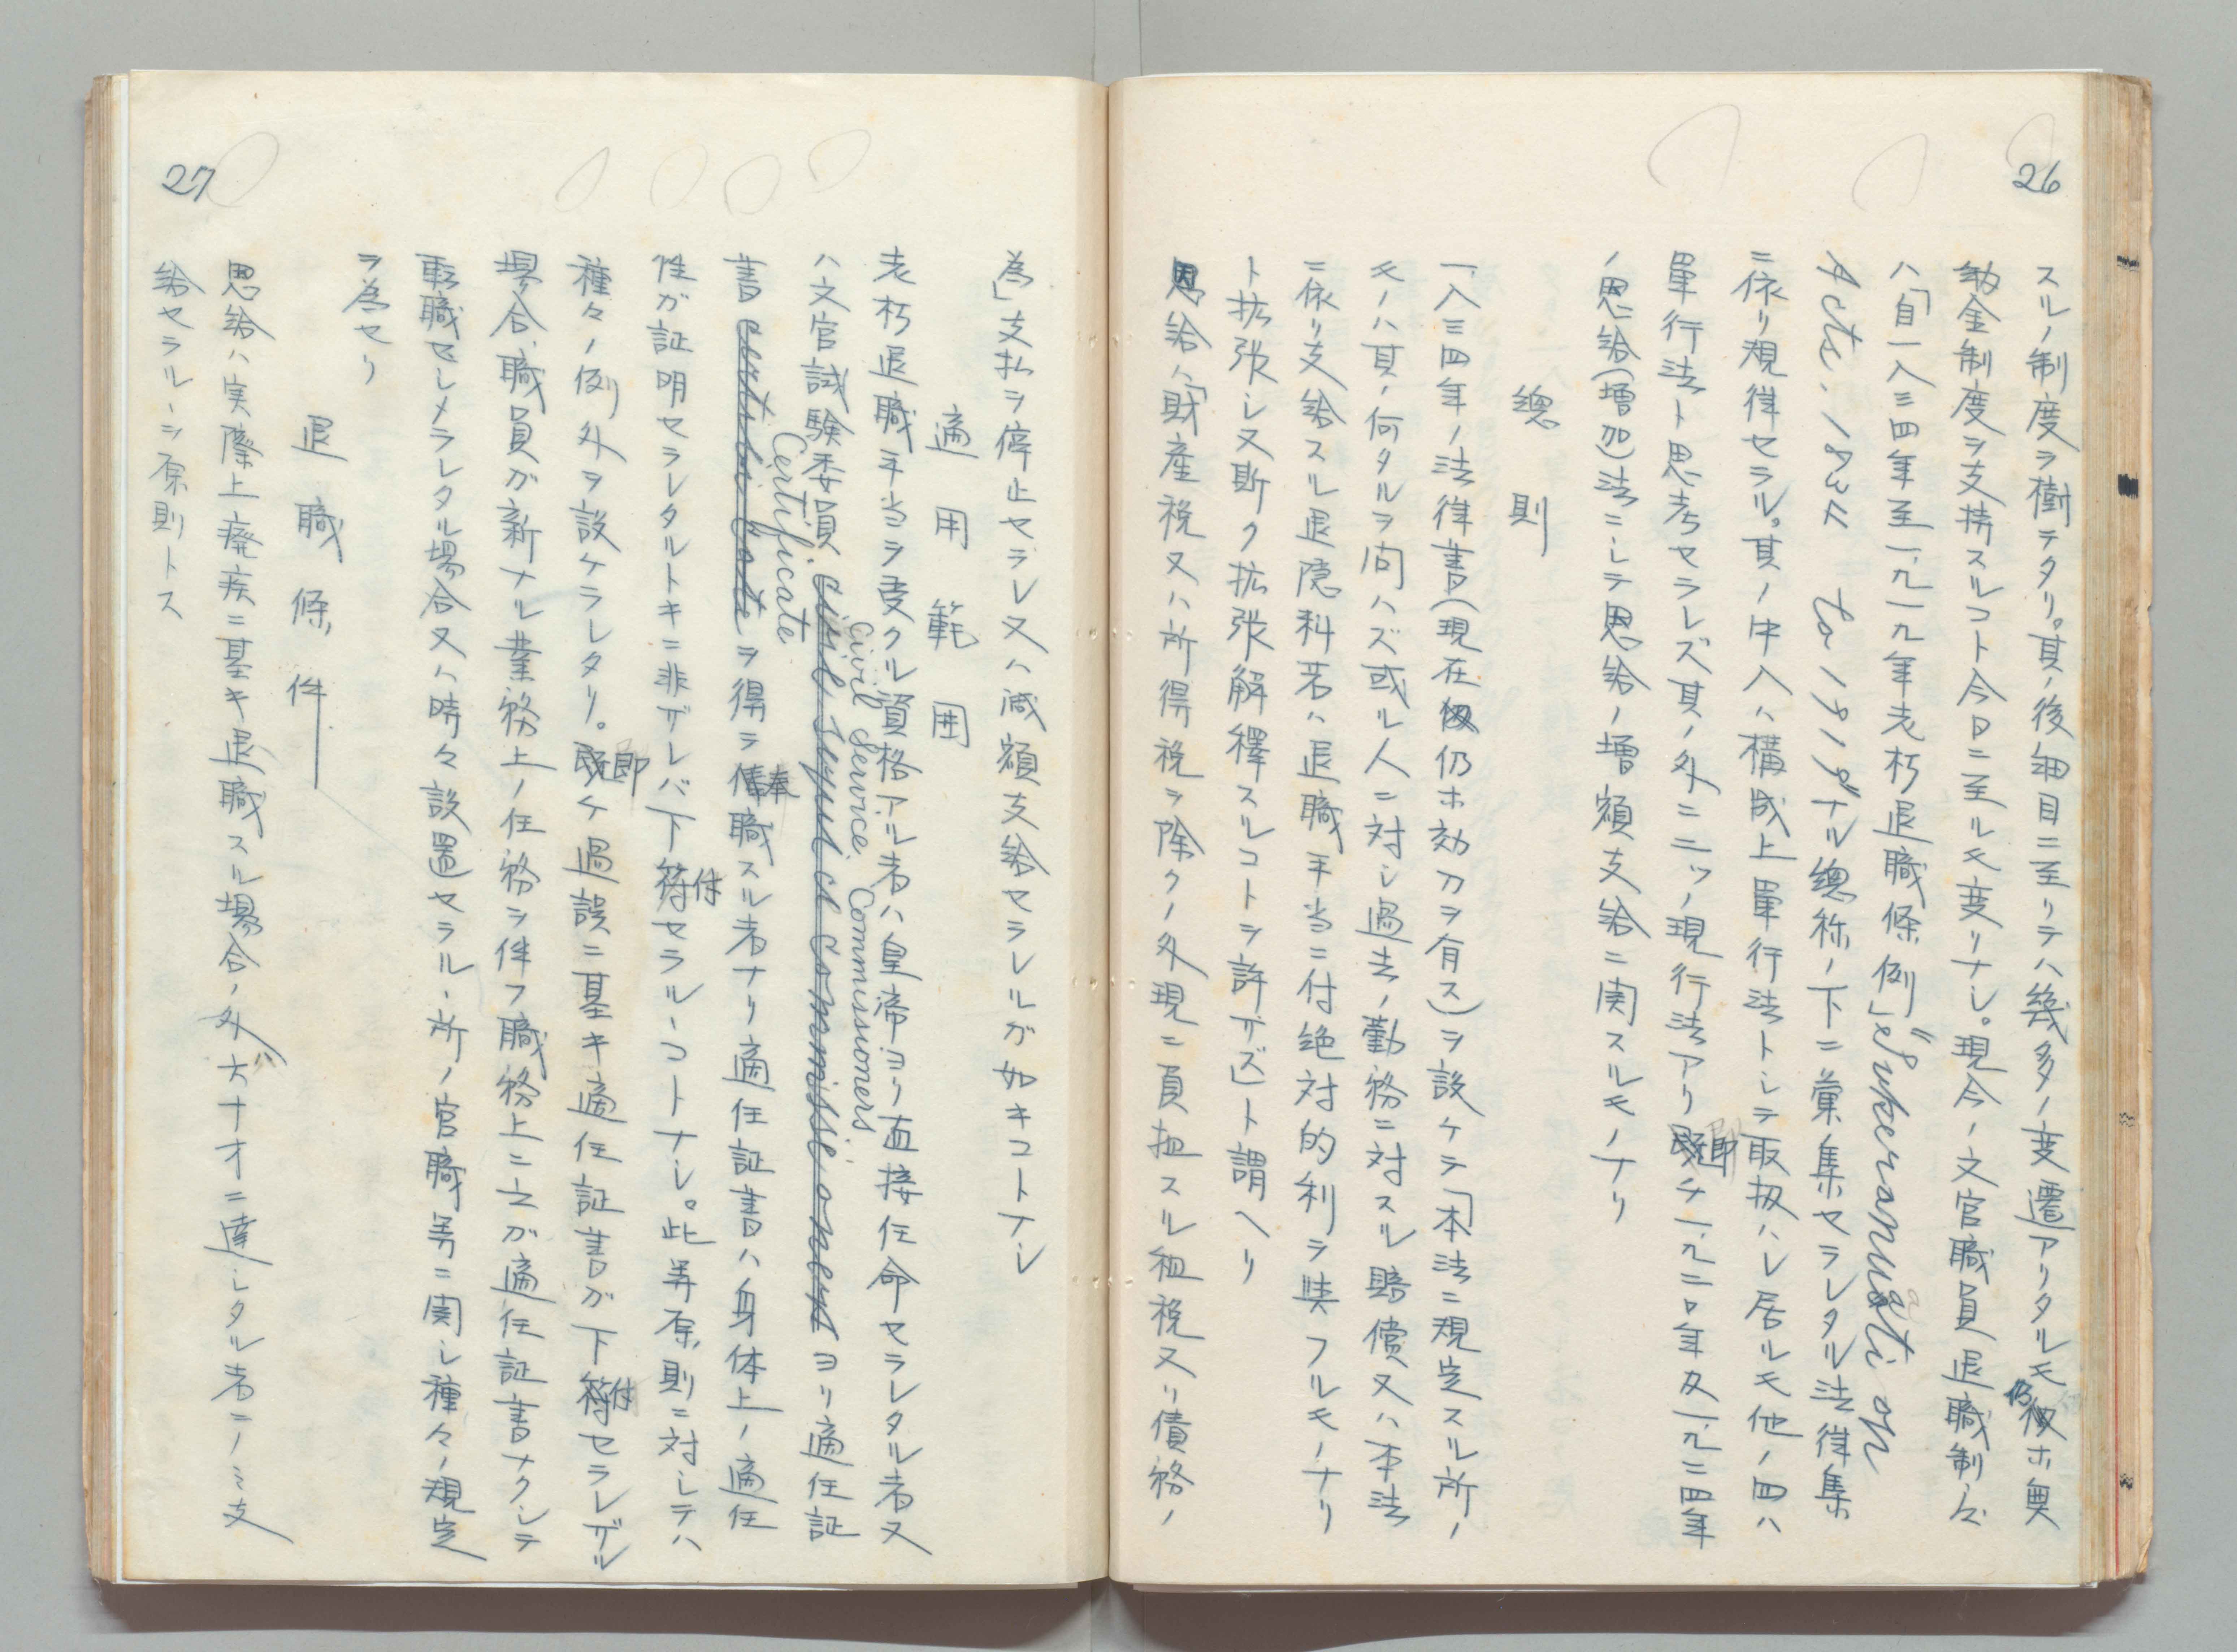 26
スルノ制度ヲ樹テタリ。其ノ後細目ニ至リテハ幾多ノ変遷アリタルモ仍ホ無
拠金制度ヲ支持スルコト今日ニ至ルモ変リナシ。現今ノ文官職員退職制度
ハ「自一八三四年至一九一九年老朽退職條例」"Superannuation
Acts, 1834 to 1919"ナル總称ノ下ニ彙集セラレタル法律集
ニ依リ規律セラル。其ノ中八ハ構成上單行法トシテ取扱ハレ居ルモ他ノ四ハ
單行法ト思考セラレズ其ノ外ニ二ツノ現行法アリ即チ一九二〇年及一九二四年
ノ恩給(増加)法ニシテ恩給ノ増額支給ニ関スルモノナリ
總則
一八三四年ノ法律書(現在仍ホ効力ヲ有ス)ヲ設ケテ「本法ニ規定スル所ノ
モノハ其ノ何タルヲ问ハズ或ル人ニ対シ過去ノ勤務ニ対スル賠償又ハ本法
ニ依リ支給スル退隠料若ハ退職手当ニ付絶対的利ヲ與フルモノナリ
ト拡張シ又斯ク拡張解釋スルコトヲ許サズ」ト謂ヘリ
恩給ハ「財産税又ハ所得税ヲ除クノ外現ニ負担スル租税又ハ債務ノ
27
為」支払ヲ停止セラレ又ハ減額支給セラレルガ如キコトナシ
適用範囲
老朽退職手当ヲ受クル資格アル者ハ皇帝ヨリ直接任命セラレタル者又
ハ文官試験委員 Civil Service Commissioners ヨリ適任証
書 Certificate ヲ得テ奉職スル者ナリ適任証書ハ身体上ノ適任
性ガ証明セラレタルトキニ非ザレバ下付セラルヽコトナシ。此等原則ニ対シテハ
種々ノ例外ヲ設ケラレタリ。即チ過誤ニ基キ適任証書ガ下付セラレザル
場合、職員ガ新ナル業務上ノ任務ヲ伴フ職務上ニ立ガ適任証書ナクシテ
転職セシメラレタル場合又ハ時々設置セラルヽ所ノ官職等ニ関シ種々ノ規定
ヲ為セリ
退職條件
恩給ハ実際上癈疾ニ基キ退職スル場合ノ外ハ六十才ニ達シタル者ニノミ支
給セラルヽヲ原則トス